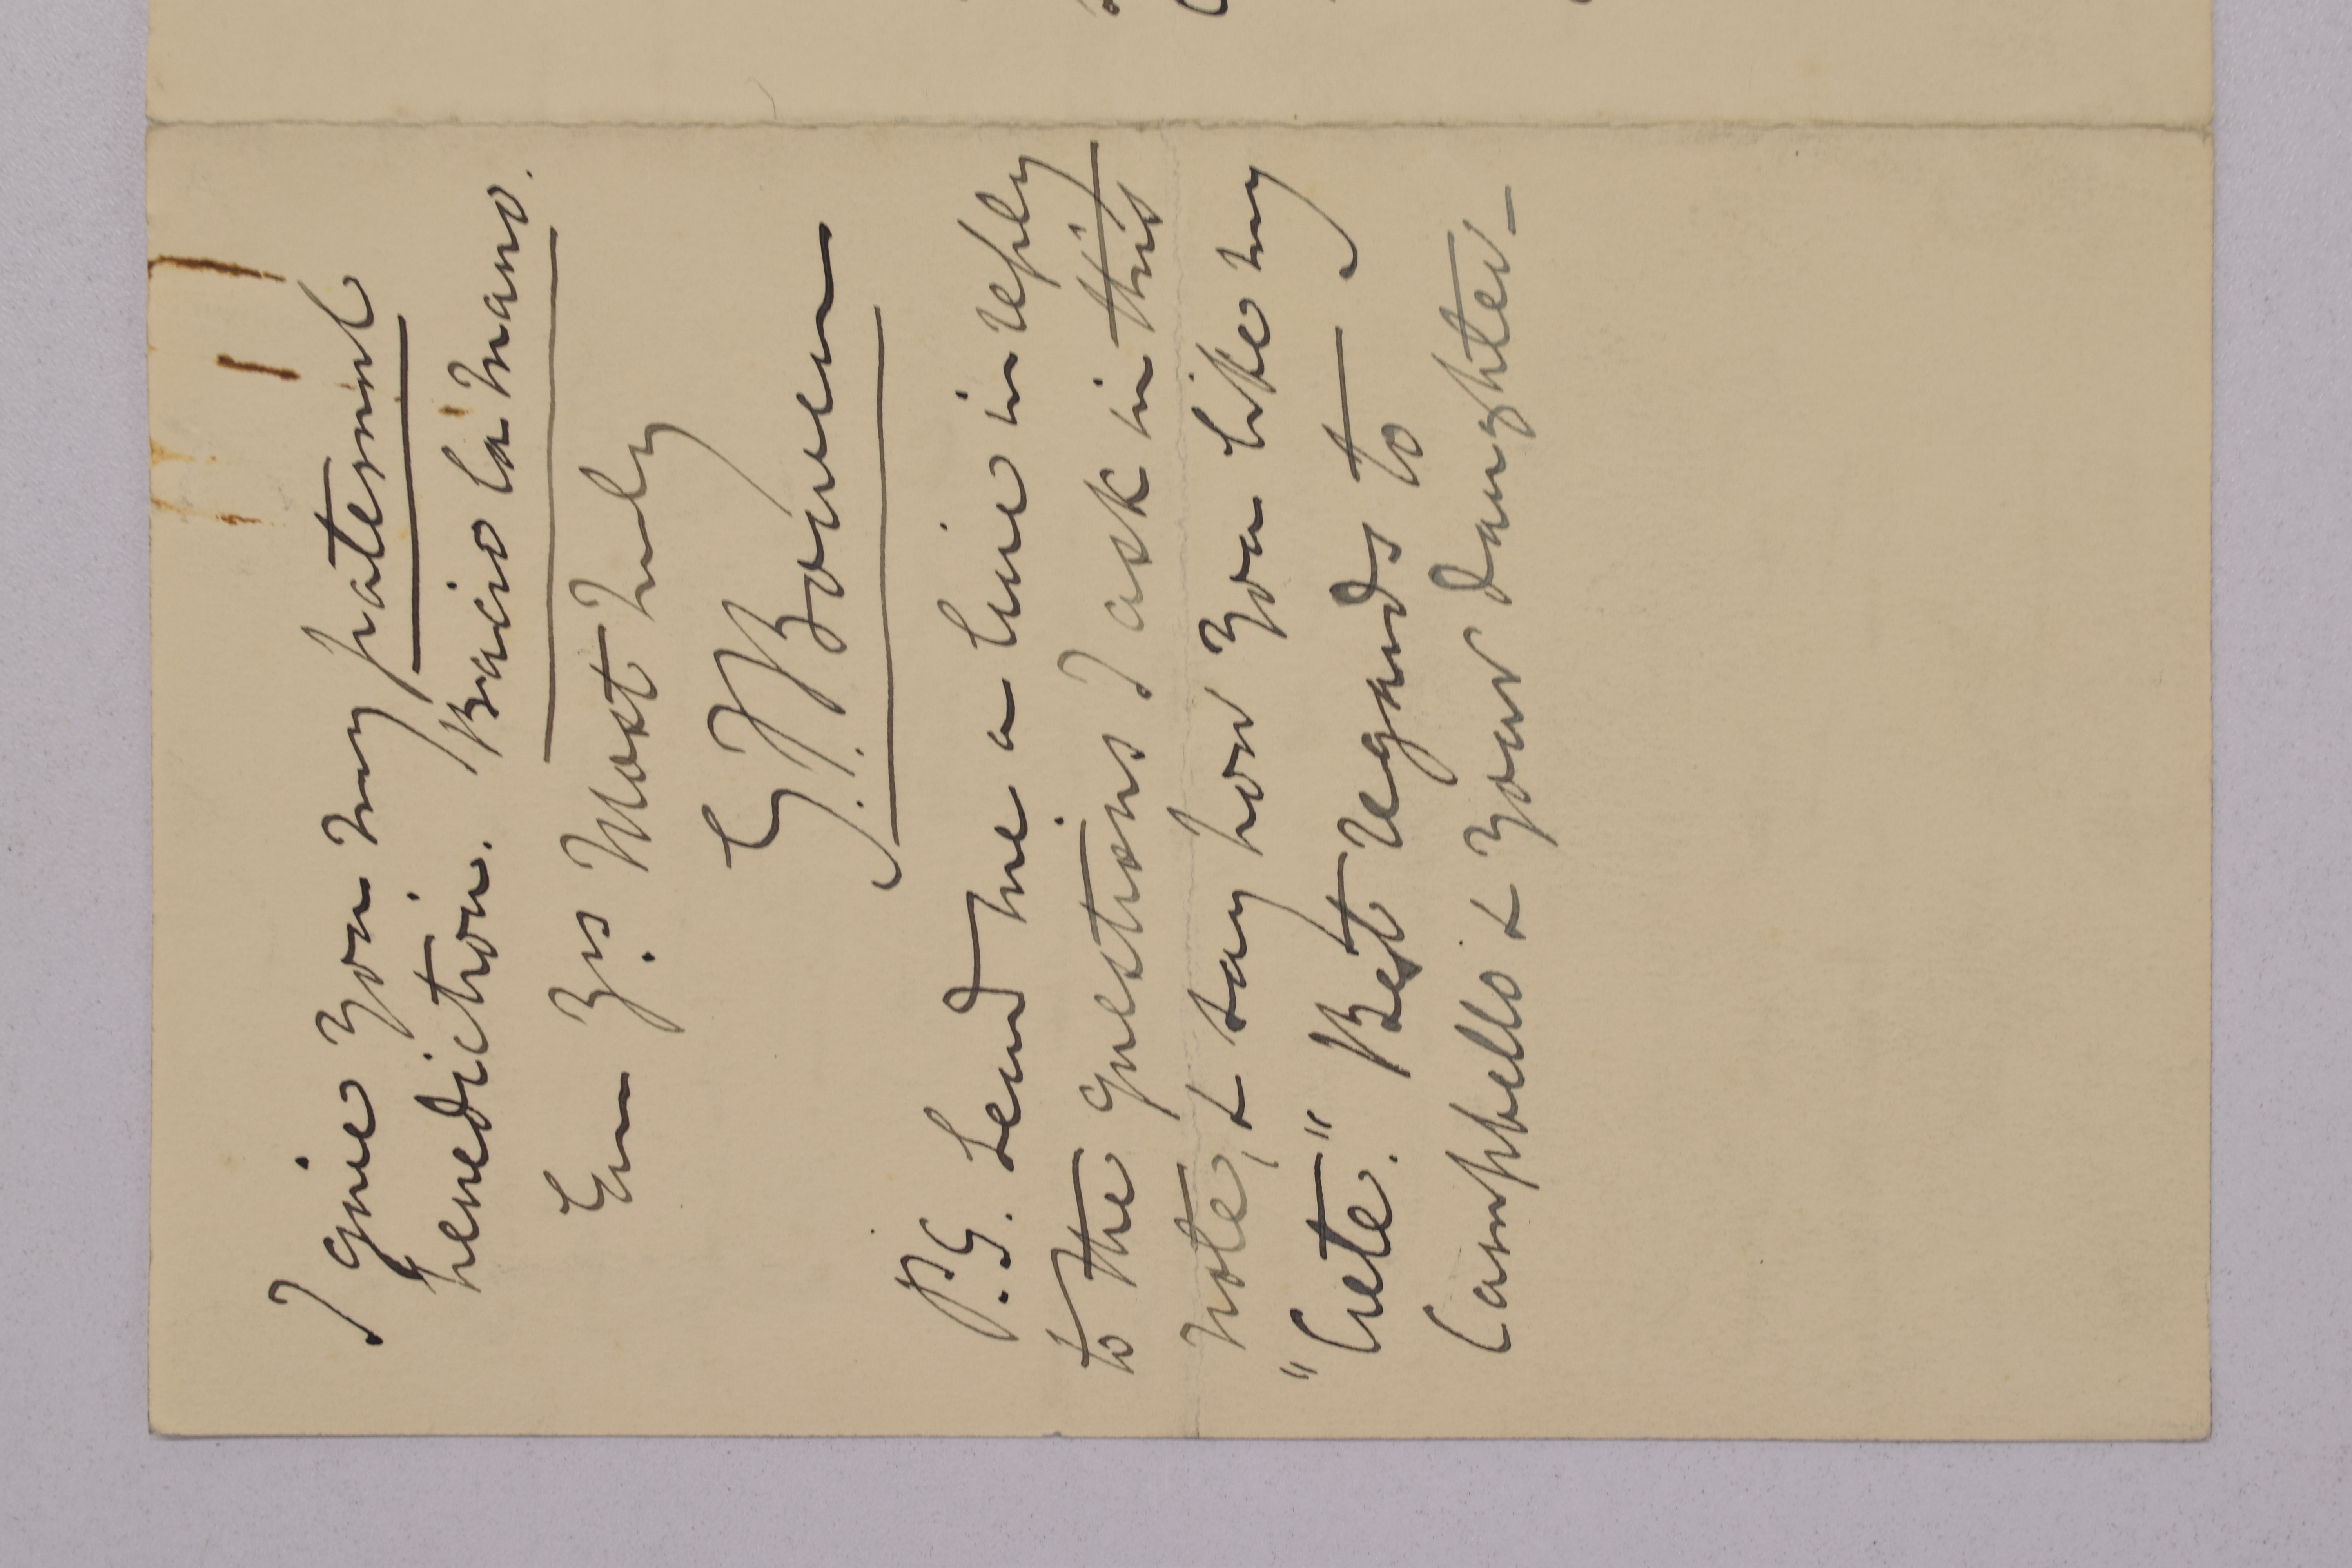 I give you my paternal
benediction. Bacio la mano.
Ever Yrs. Most truly
G. F. Bowen
P.S. Send me a line in reply
to the questions I ask in this
note, & say how you like my
"Crete." Best regards to
Campbello & your daughter_